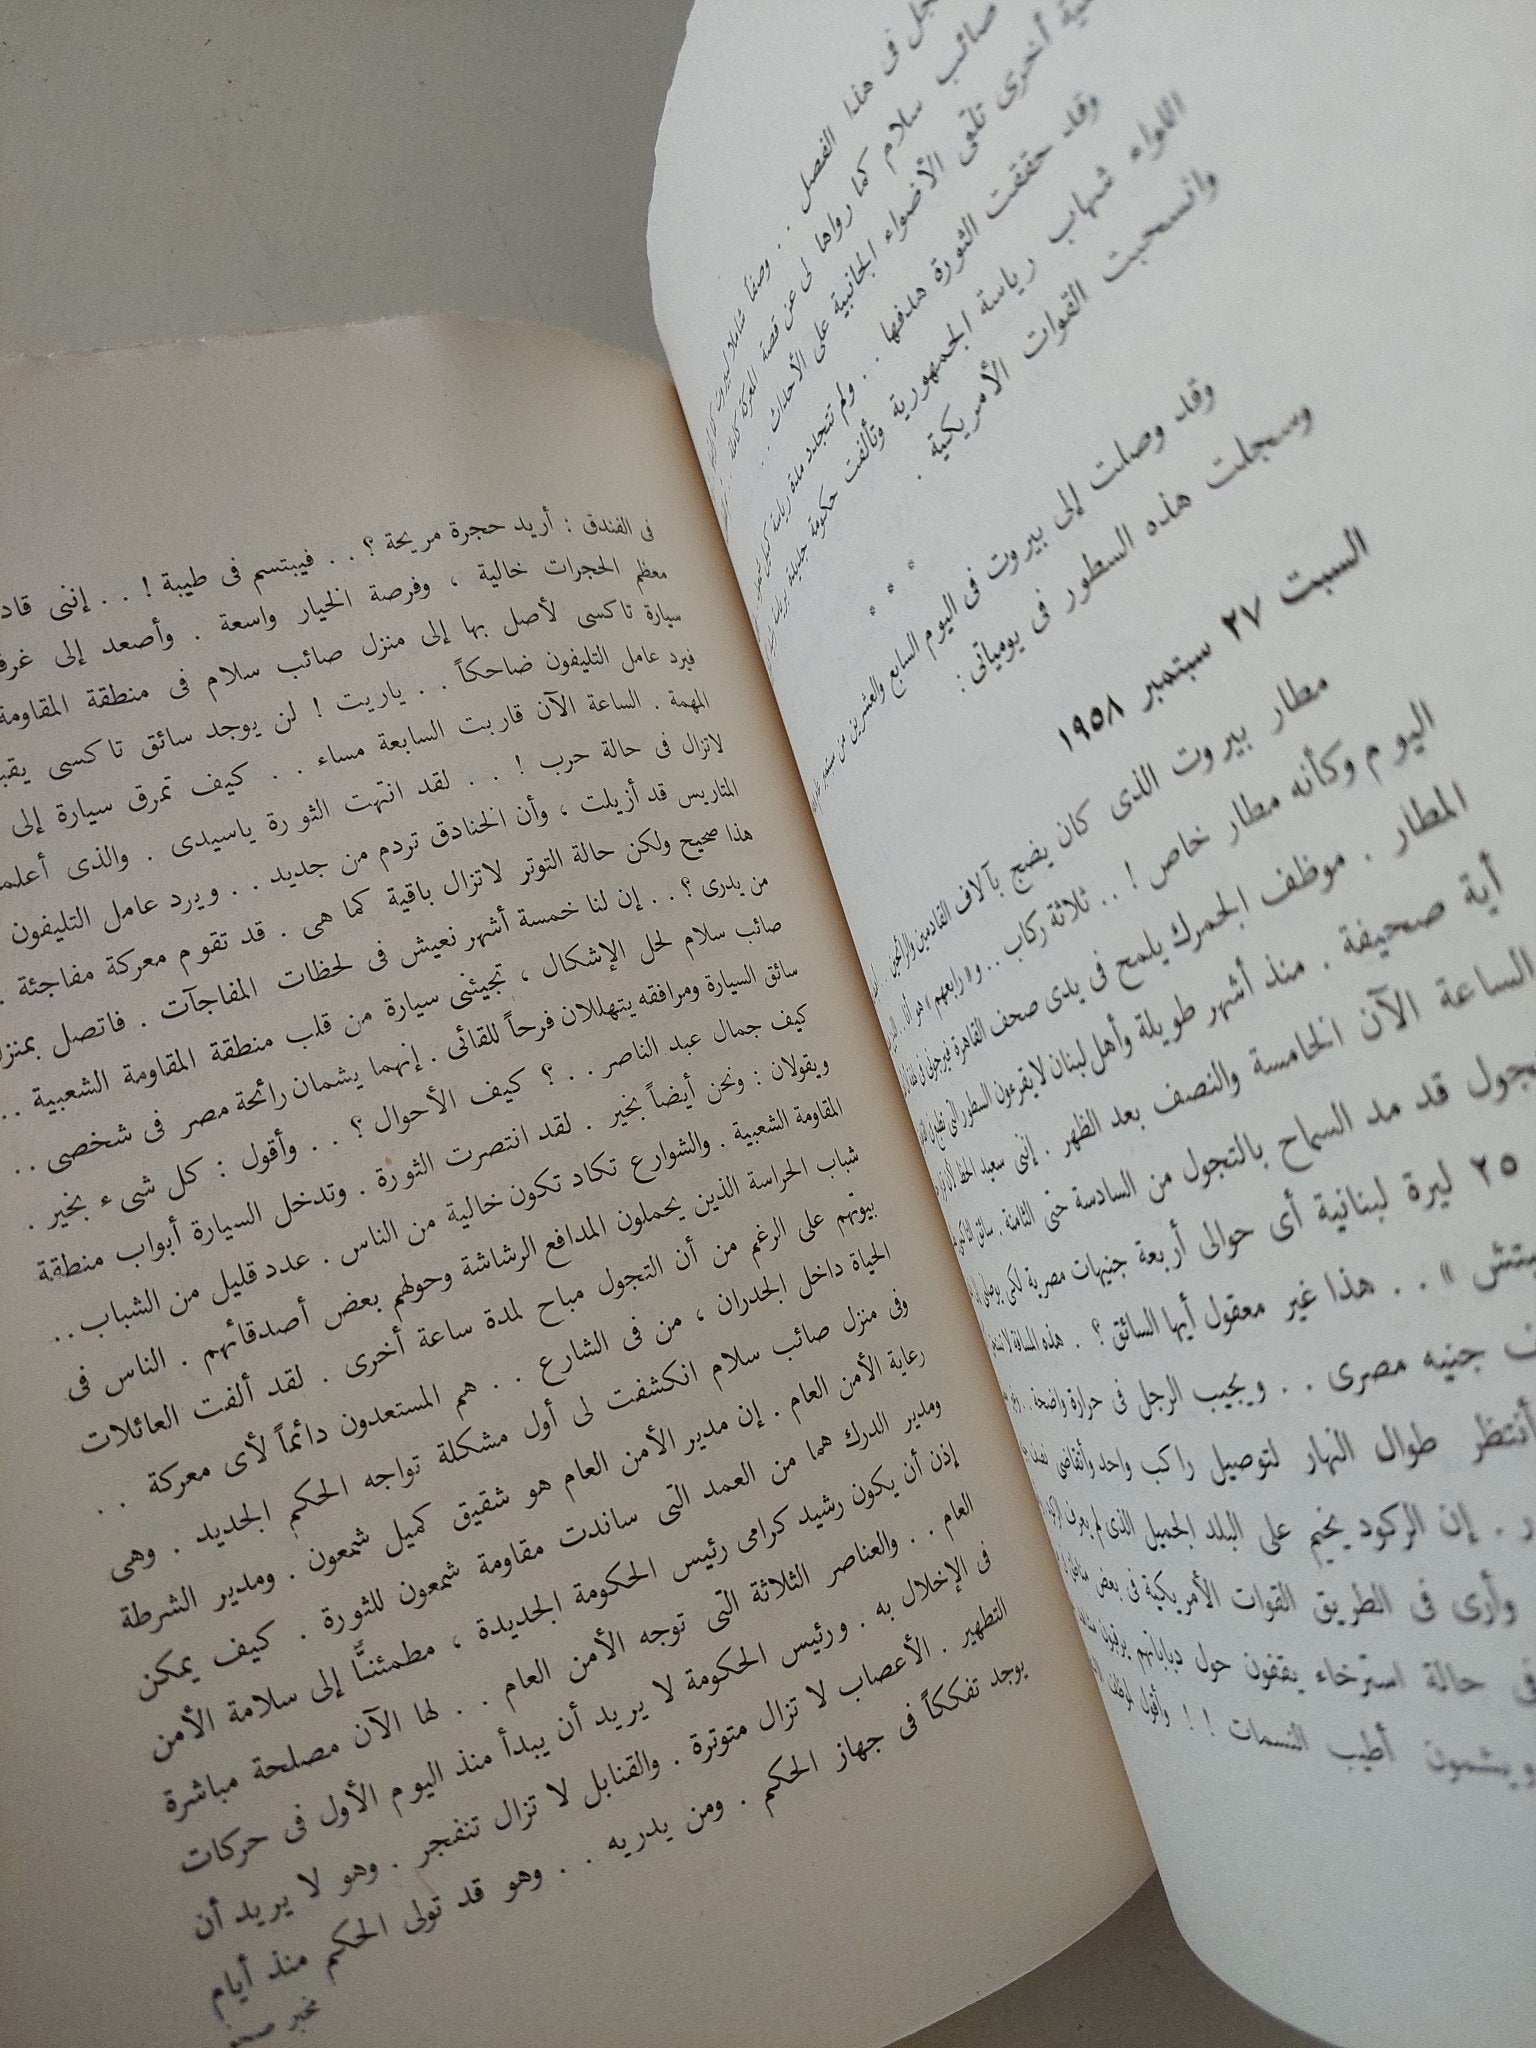 جل فى هذا الفصل . . وصفاً شاملا لبيروت
صائب سلام كما رواها لى عن قصة المعركة كاملة
أخرى تلقى الأضواء الجانبية على الأحداث . .
وقد حققت الثورة هدفها . . ولم تتجدد مدة رياسة كميل
اللواء شهاب رياسة الجمهورية وتألفت حكومة جديدة
وانسحبت القوات الأمريكية .
* * *
وقد وصلت إلى بيروت فى اليوم السابع والعشرين من سبتمبر
وسجلت هذه السطور فى يومياتى :
السبت ٢٧ سبتمبر ١٩٥٨
مطار بيروت الذى كان يضج بآلاف القادمين والرائحين
اليوم وكأنه مطار خاص ! . . ثلاثة ركاب . . و « رابعهم » هو أنا
المطار . موظف الجمرك يلمح فى يدى صحف القاهرة فيرجونى فى
أية صحيفة . منذ أشهر طويلة وأهل لبنان لا يقرءون السطور التى
الساعة الآن الخامسة والنصف بعد الظهر . إننى سعيد الحظ لأن
جول قد مد السماح بالتجول من السادسة حتى الثامنة . سائق التاكسى
٢٥ ليرة لبنانية أى حوالى أربعة جنيهات مصرية لكى يوصلنى
» . . هذا غير معقول أيها السائق ؟ . هذه المسافة لا
جنيه مصرى . . ويجيب الرجل فى حرارة واضحة
أنتظر طوال النهار لتوصيل راكب واحد وأتقاضى
. إن الركود يخيم على البلد الجميل الذى لم يعرف الركود
وأرى فى الطريق القوات الأمريكية فى بعض
فى حالة استرخاء يقفون حول دباباتهم يرقبون
ويشمون أطيب النسمات ! ! وأقول لموظف
فى الفندق : أريد حجرة مريحة ؟ . . فيبتسم فى طيبة ! . . إننى
معظم الحجرات خالية ، وفرصة الخيار واسعة . وأصعد إلى
سيارة تاكسى لأصل بها إلى منزل صائب سلام فى منطقة المقاومة
فيرد عامل التليفون ضاحكاً . . ياريت ! لن يوجد سائق تاكسى
المهمة . الساعة الآن قاربت السابعة مساء . . كيف تمرق سيارة إلى
لاتزال فى حالة حرب ! . . لقد انتهت الثورة ياسيدى . والذى
المتاريس قد أزيلت ، وأن الخنادق تردم من جديد . . ويرد عامل التليفون
هذا صحيح ولكن حالة التوتر لاتزال باقية كما هى . قد تقوم معركة مفاجئة .
من يدرى ؟ . . إن لنا خمسة أشهر نعيش فى لحظات المفاجآت . فاتصل بمنزل
صائب سلام لحل الإشكال ، تجيئنى سيارة من قلب منطقة المقاومة الشعبية . .
سائق السيارة ومرافقه يتهللان فرحاً للقائى . إنهما يشمان رائحة مصر فى شخصى . .
كيف جمال عبد الناصر . . ؟ كيف الأحوال ؟ . . وأقول : كل شىء بخير .
ويقولان : ونحن أيضاً بخير . لقد انتصرت الثورة . وتدخل السيارة أبواب منطقة
المقاومة الشعبية . والشوارع تكاد تكون خالية من الناس . عدد قليل من الشباب . .
شباب الحراسة الذين يحملون المدافع الرشاشة وحولهم بعض أصدقائهم . الناس فى
بيوتهم على الرغم من أن التجول مباح لمدة ساعة أخرى . لقد ألفت العائلات
الحياة داخل الجدران ، من فى الشارع . . هم المستعدون دائماً لأى معركة . .
وفى منزل صائب سلام انكشفت لى أول مشكلة تواجه الحكم الجديد . وهى
رعاية الأمن العام . إن مدير الأمن العام هو شقيق كميل شمعون . ومدير الشرطة
ومدير الدرك هما من العمد التى ساندت مقاومة شمعون للثورة . كيف يمكن
إذن أن يكون رشيد كرامى رئيس الحكومة الجديدة ، مطمئنًّا إلى سلامة الأمن
العام . . والعناصر الثلاثة التى توجه الأمن العام . . لها الآن مصلحة مباشرة
فى الإخلال به . ورئيس الحكومة لا يريد أن يبدأ منذ اليوم الأول فى حركات
التطهير . الأعصاب لا تزال متوترة . والقنابل لا تزال تنفجر . وهو لا يريد أن
يوجد تفككاً فى جهاز الحكم . ومن يدريه . . وهو قد تولى الحكم منذ أيام
مخبر